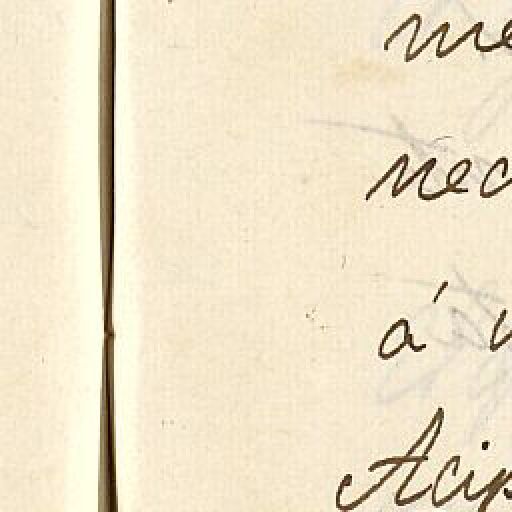 me
nec
á
Acip